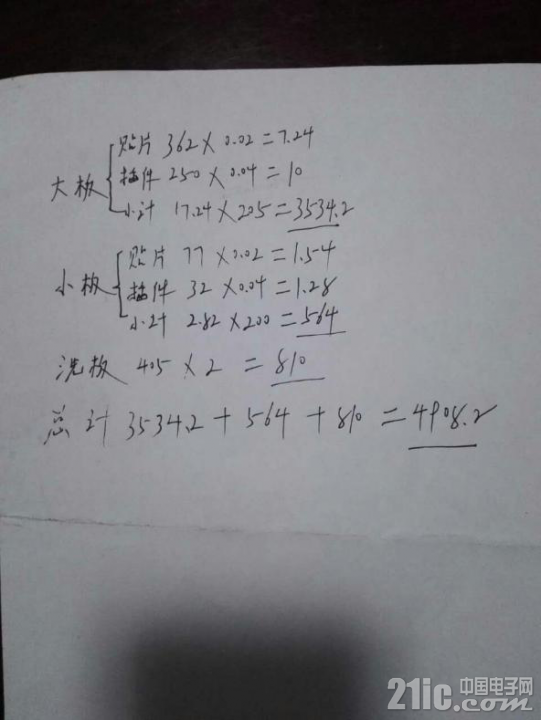 大板
贴片 362 × 0.02 = 7.24
插件 250 × 0.04 = 10
小计 17.24 × 205 = 3534.2
小板
贴片 77 × 0.02 = 1.54
插件 32 × 0.04 = 1.28
小计 2.82 × 200 = 564
洗板 405 × 2 = 810
总计 3534.2 + 564 + 810 = 4908.2
21ic.com 中国电子网